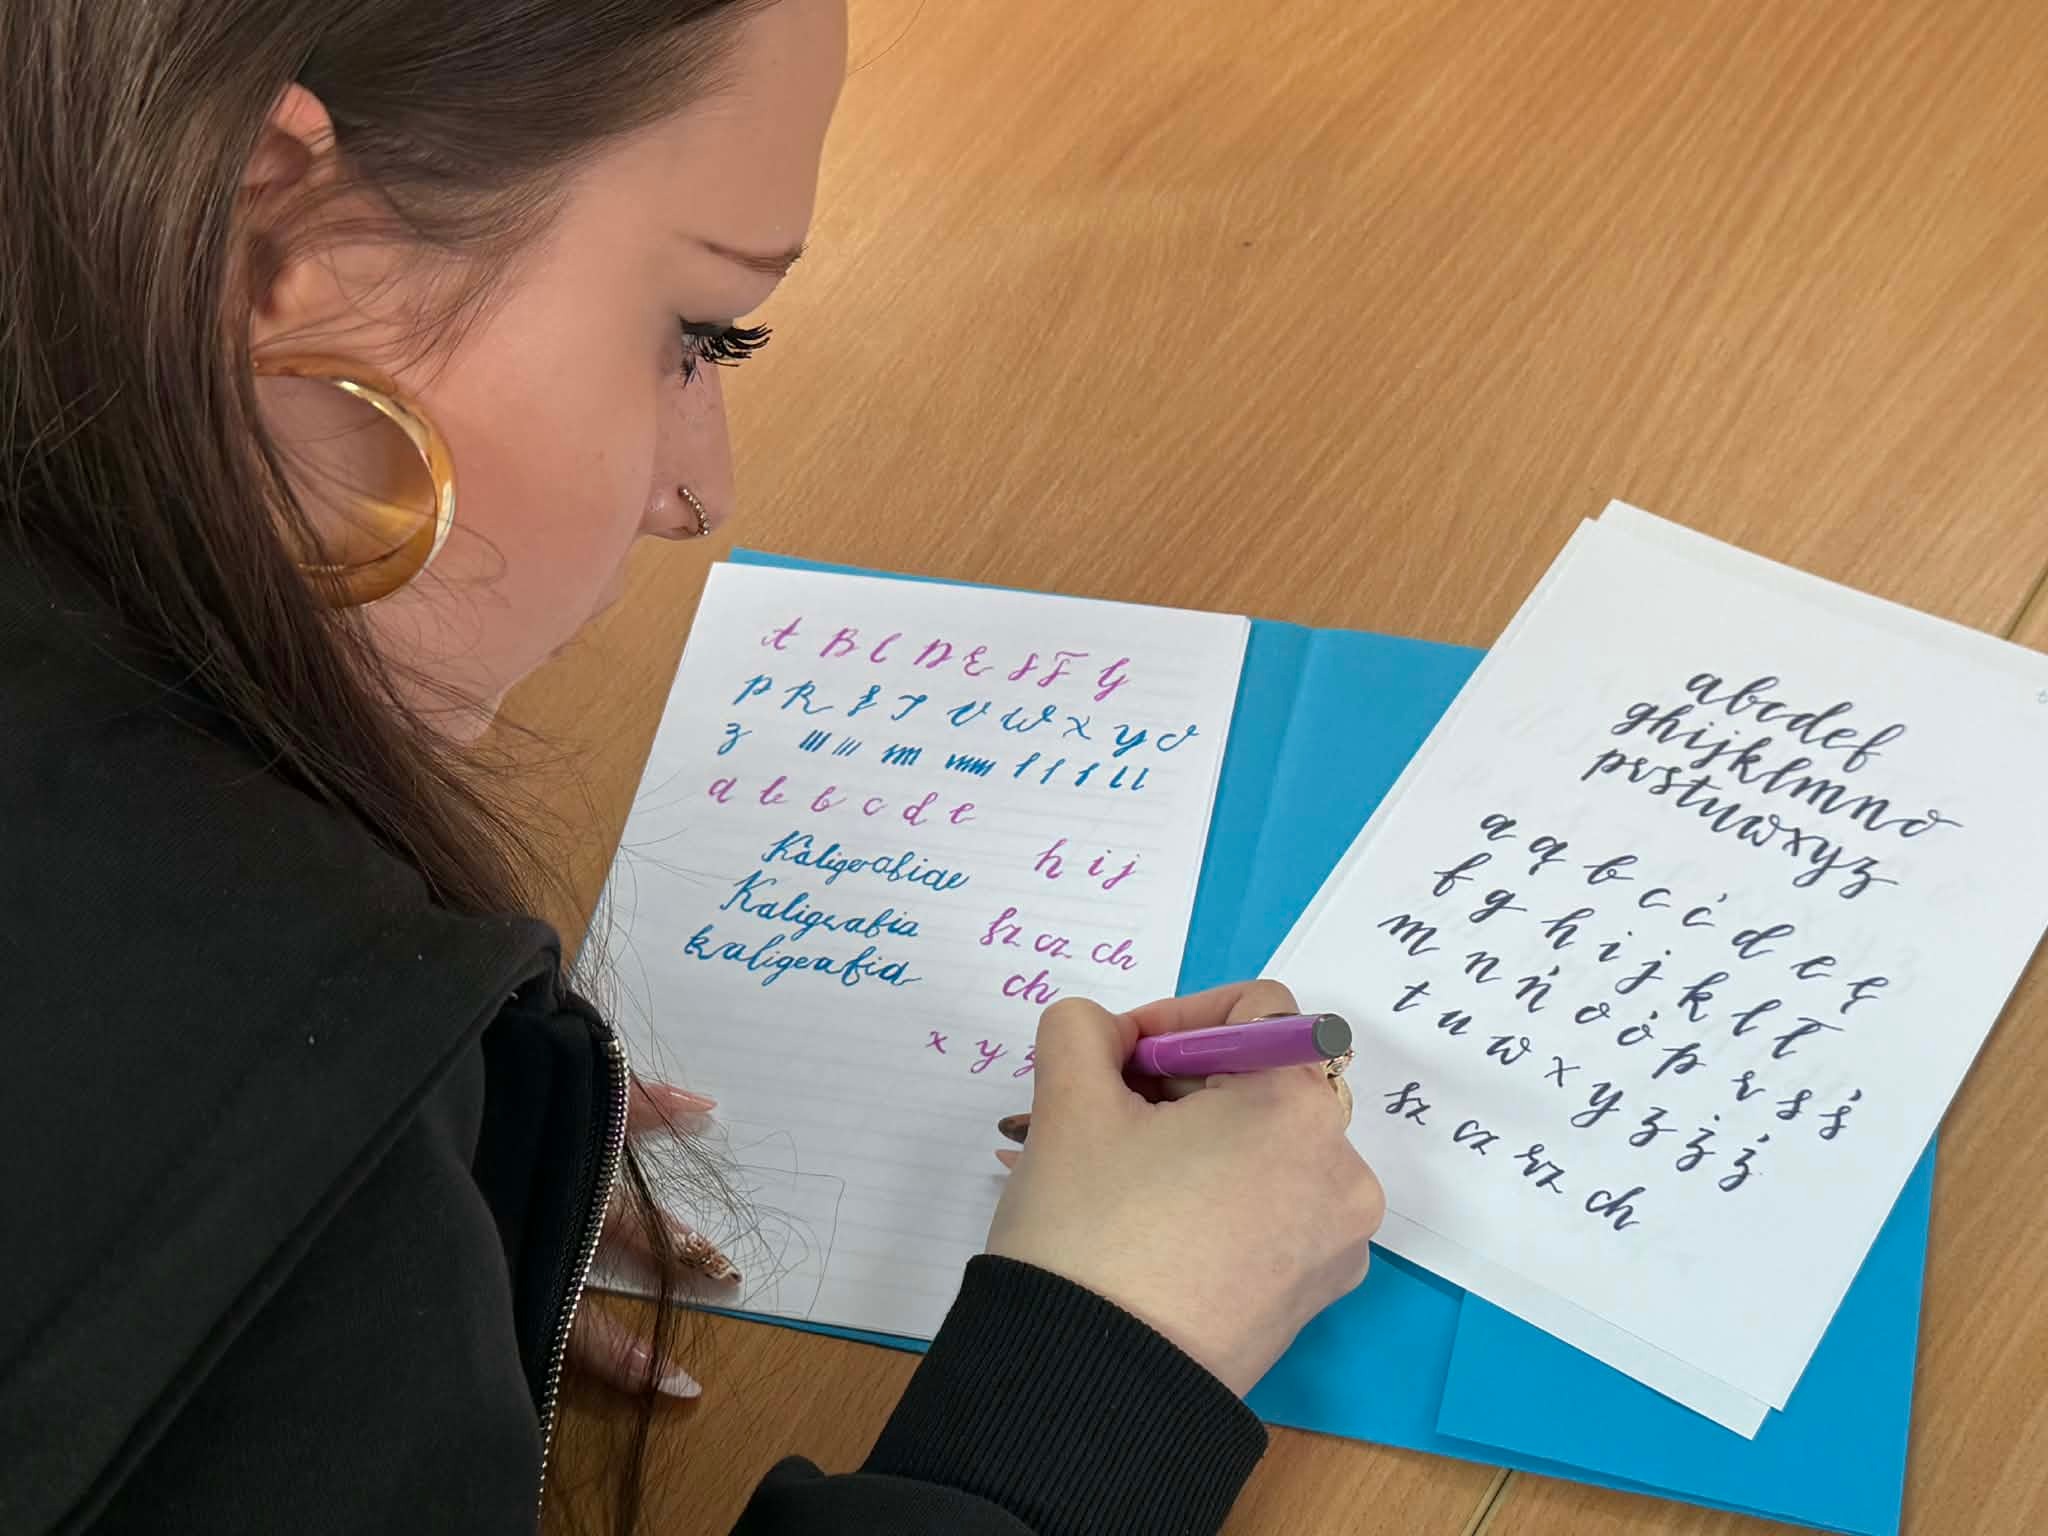 A B C D E F F G
P R S T U W X Y O
Z
a b b c d e
h i j
Kaligrafia
Kaligrafia
sz cz ch
kaligrafia
ch
x y z
abcdef
ghijklmno
prstuwxyz
a ą b c ć d e ę
f g h i j k l ł
m n ń o ó p r s ś
t u w x y z ż ź
sz cz rz ch